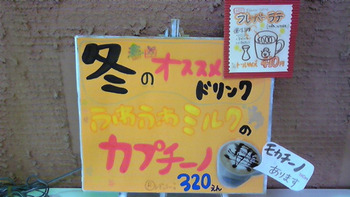 冬の
オススメ
ドリンク
ふわふわミルクの
カプチーノ
320えん
フレーバーラテ
モカチーノ
あります